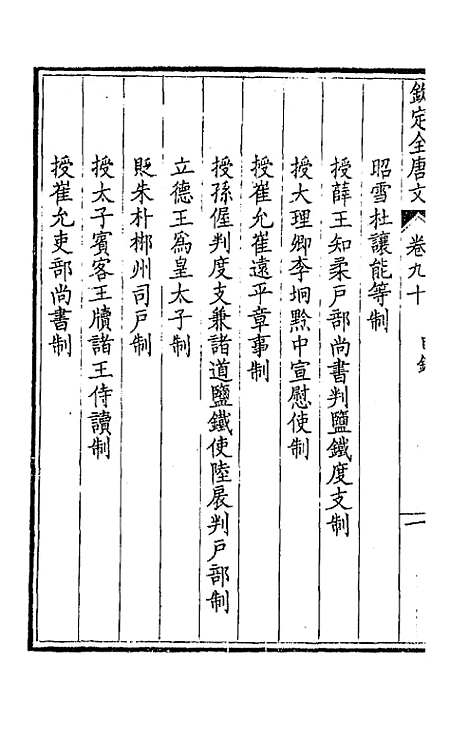 欽定全唐文 卷九十 目錄 一
昭雪杜讓能等制
授薛王知柔戶部尚書判鹽鐵度支制
授大理卿李坰黔中宣慰使制
授崔允崔遠平章事制
授孫偓判度支兼諸道鹽鐵使陸扆判戶部制
立德王為皇太子制
貶朱朴郴州司戶制
授太子賓客王牘諸王侍讀制
授崔允吏部尚書制